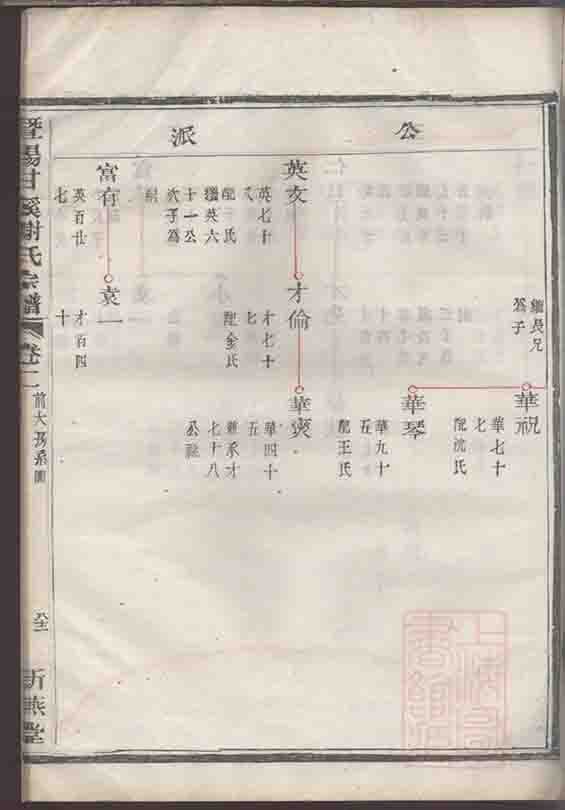 公派
繼長兄
爲子
華祝
華七十
七
配沈氏
華琴
華九十
五
配王氏
英文
英七十
八
配于氏
繼英六
十一公
次子爲
嗣
才倫
才七十
七
配金氏
華奭
華四十
五
兼承才
七十八
公祉
富有
英百廿
七
袁一
才百四
十
暨陽甘溪謝氏宗譜
卷二
前大房系圖
八十二